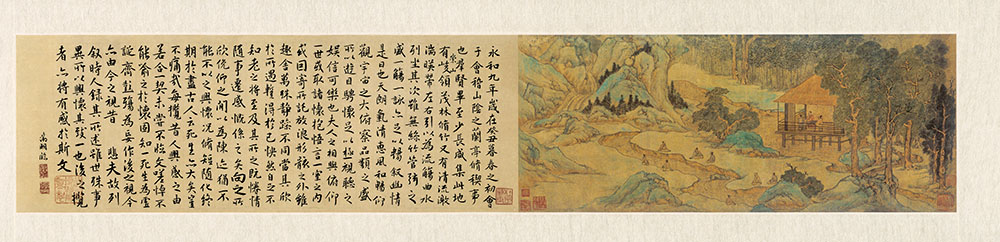 永和九年歲在癸丑暮春之初會
于會稽山陰之蘭亭脩稧事
也群賢畢至少長咸集此地
有崇山峻領茂林脩竹又有清流激
湍暎帶左右引以為流觴曲水
列坐其次雖無絲竹管弦之
盛一觴一詠亦足以暢敘幽情
是日也天朗氣清惠風和暢仰
觀宇宙之大俯察品類之盛
所以遊目騁懷足以極視聽之
娛信可樂也夫人之相與俯仰
一世或取諸懷抱悟言一室之內
或因寄所託放浪形骸之外雖
趣舍萬殊靜躁不同當其欣
於所遇暫得於己快然自足不
知老之將至及其所之既惓情
隨事遷感慨係之矣向之所
欣俛仰之間以為陳迹猶不
能不以之興懷況脩短隨化終
期於盡古人云死生亦大矣豈
不痛哉每攬昔人興感之由
若合一契未嘗不臨文嗟悼不
能喻之於懷固知一死生為虛
誕齊彭殤為妄作後之視今
亦由今之視昔 悲夫故列
敘時人錄其所述雖世殊事
異所以興懷其致一也後之攬
者亦將有感於斯文
徵明臨